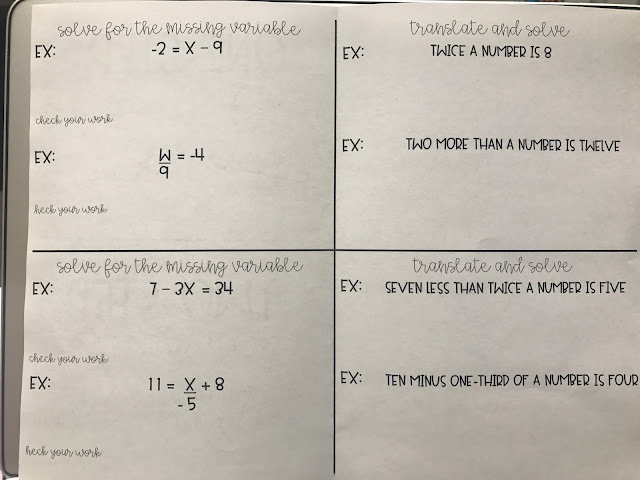 solve for the missing variable
EX: -2 = X - 9
check your work
EX: W/9 = -4
heck your work
translate and solve
EX: TWICE A NUMBER IS 8
EX: TWO MORE THAN A NUMBER IS TWELVE
solve for the missing variable
EX: 7 - 3X = 34
check your work
EX: 11 = X/-5 + 8
heck your work
translate and solve
EX: SEVEN LESS THAN TWICE A NUMBER IS FIVE
EX: TEN MINUS ONE-THIRD OF A NUMBER IS FOUR